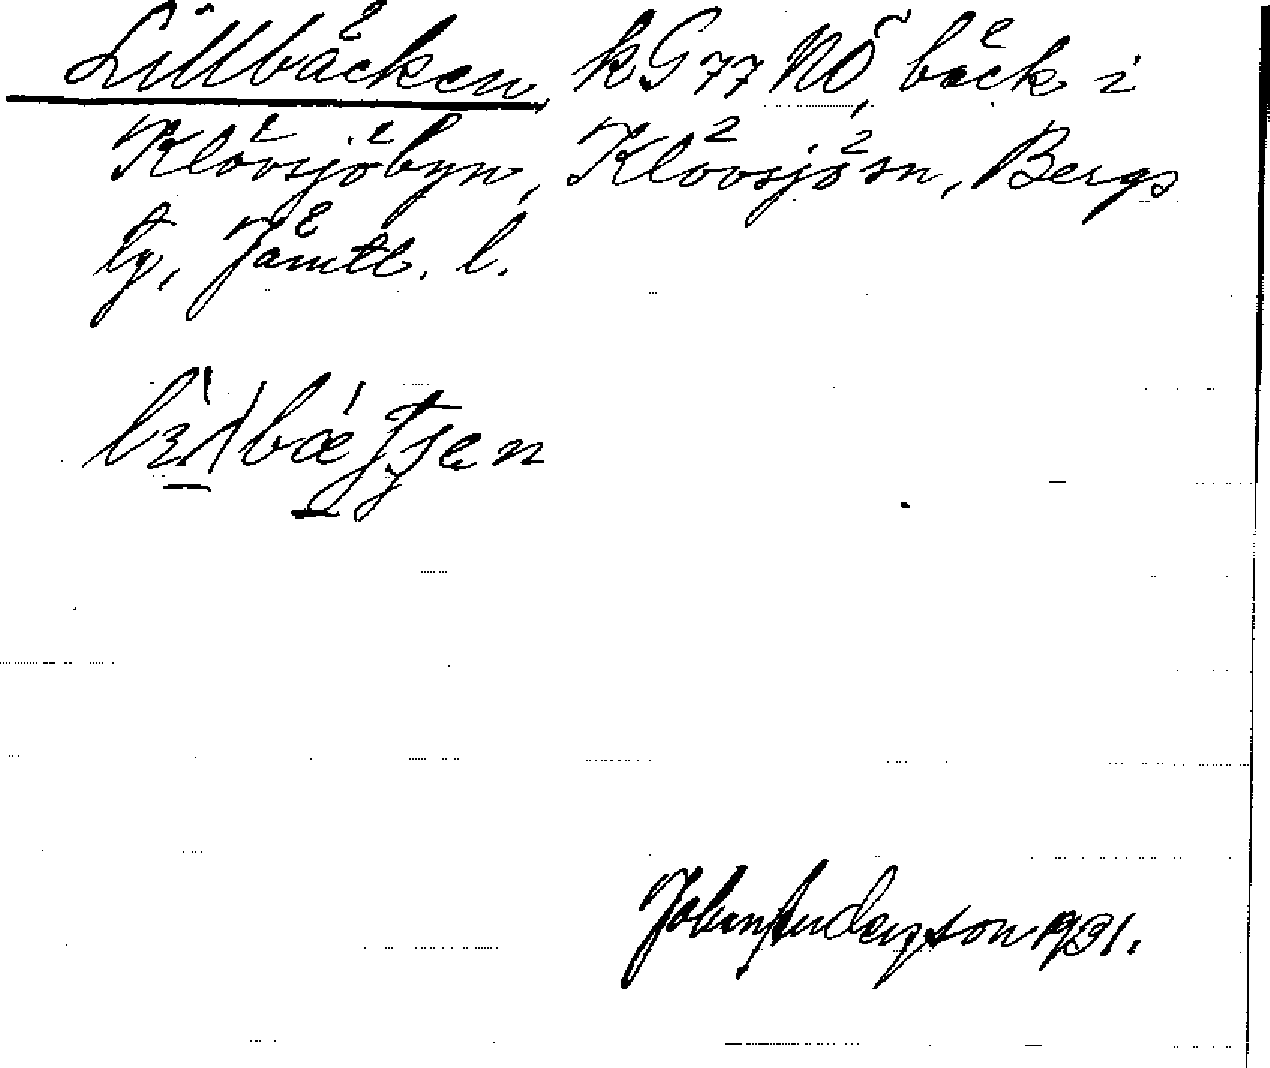 Lillbäcken, kG 77 NÖ, bäck i
Klövsjöbyn, Klövsjö sn, Bergs
tg, Jämtl. l.
John Anderzson 1931.